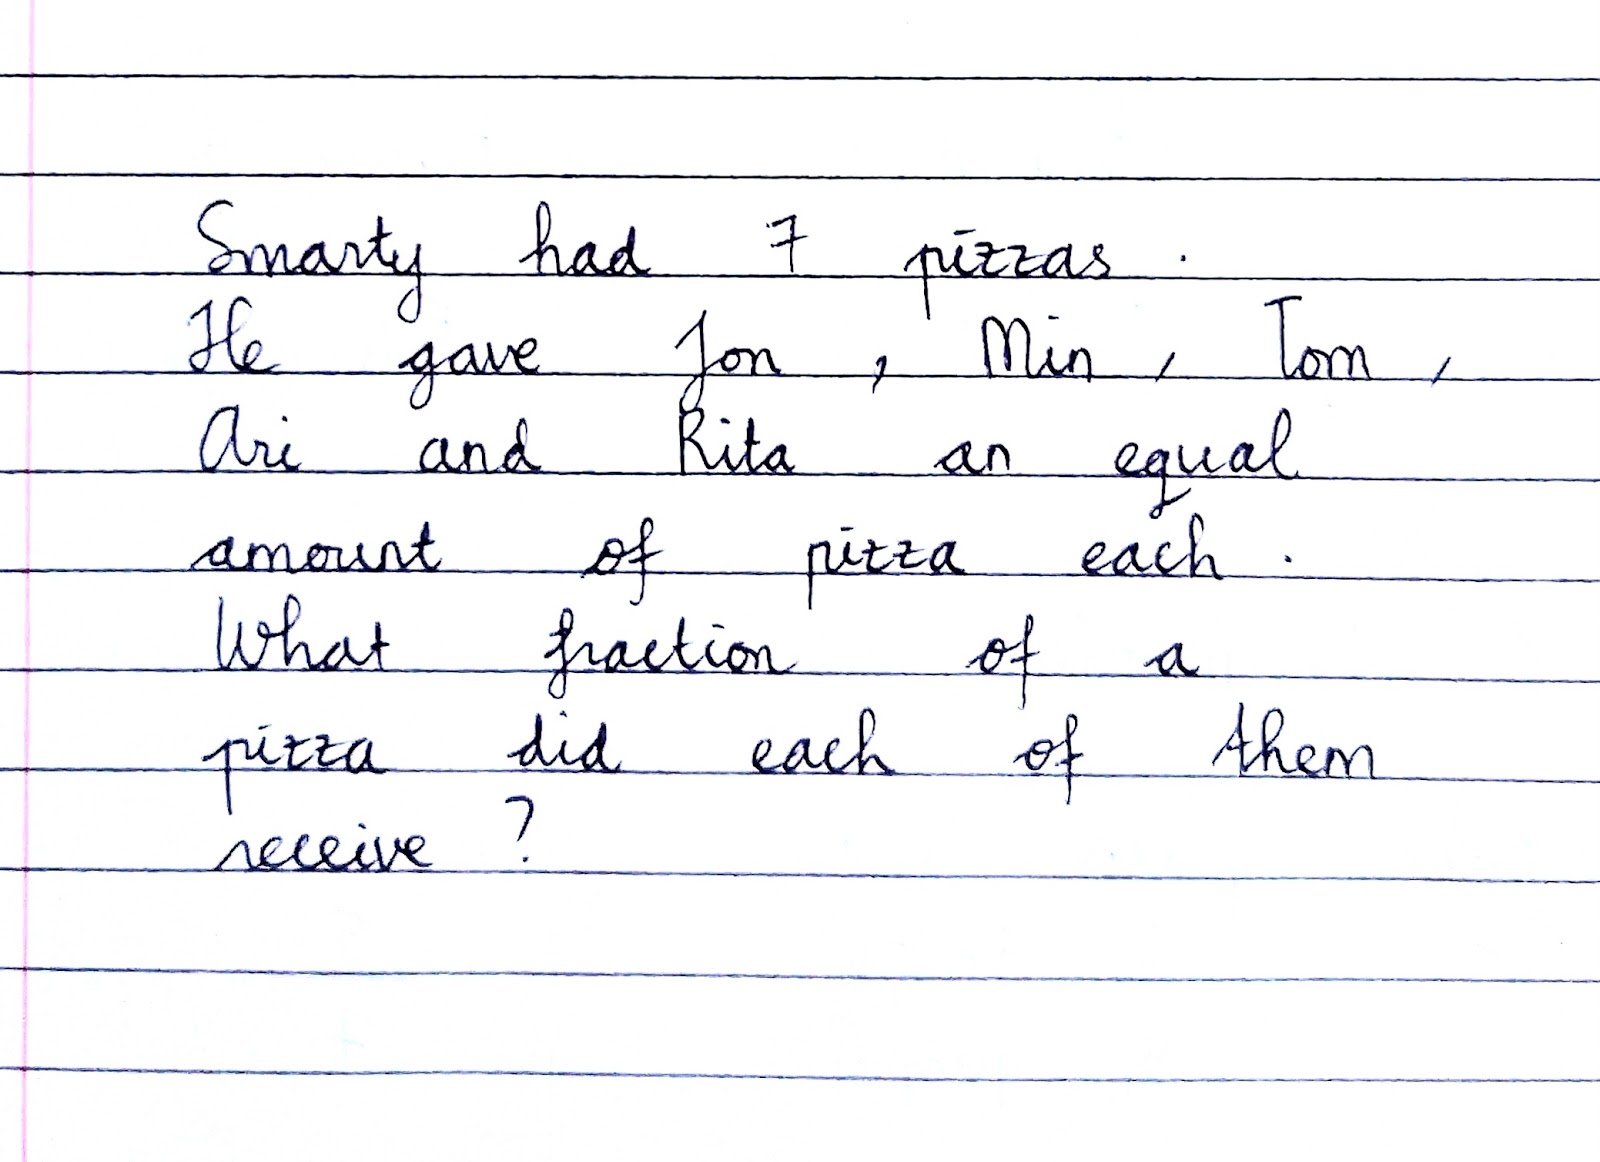 Smarty had 7 pizzas.
He gave Jon, Min, Tom,
Ari and Rita an equal
amount of pizza each.
What fraction of a
pizza did each of them
receive?